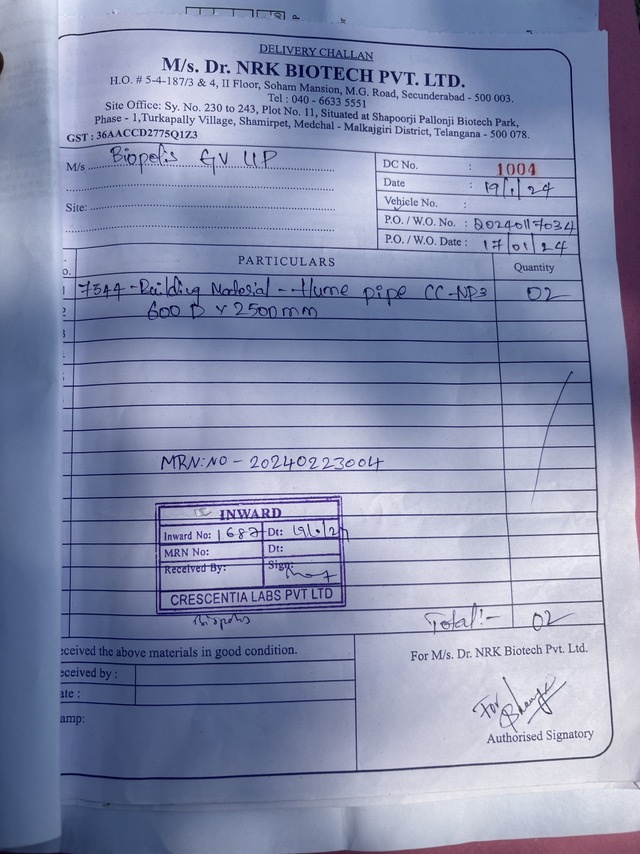 DELIVERY CHALLAN
M/s. Dr. NRK BIOTECH PVT. LTD.
H.O. # 5-4-187/3 & 4, II Floor, Soham Mansion, M.G. Road, Secunderabad - 500 003.
Tel : 040 - 6633 5551
Site Office: Sy. No. 230 to 243, Plot No. 11, Situated at Shapoorji Pallonji Biotech Park,
Phase - 1,Turkapally Village, Shamirpet, Medchal - Malkajgiri District, Telangana - 500 078.
GST : 36AACCD2775Q1Z3
M/s Biopolis GV LLP
Site:
DC No. : 1004
Date :
Vehicle No. :
P.O. / W.O. No. : 20240117034
P.O. / W.O. Date : 17/01/24
o. PARTICULARS Quantity
1 7544-Building Material -- Hume pipe CC-NP3 02
2 600 D x 2500mm
3
MRN:NO - 20240223004
INWARD
Inward No: Dt:
MRN No: Dt:
Received By: Sign:
CRESCENTIA LABS PVT LTD
Biopolis
Total:- 02
eceived the above materials in good condition.
eceived by :
ate :
amp:
For M/s. Dr. NRK Biotech Pvt. Ltd.
For
Authorised Signatory